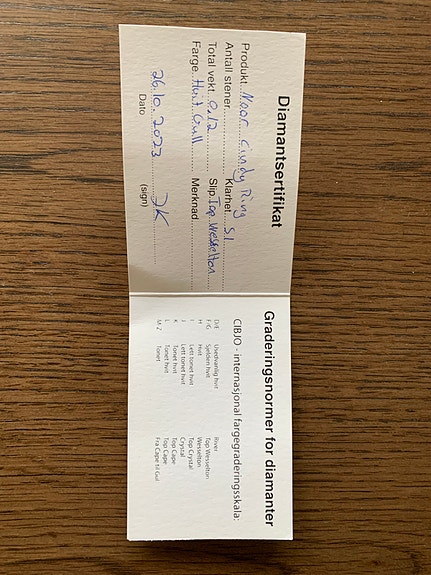 Diamantsertifikat
Produkt....Noor Cindy Ring
Antall stener.................... Klarhet....SI
Total vekt..0,12........ Slip.Top Wesselton
Farge...Hvit Gull........ Merknad....................
26.10.2023 JK
Dato (sign)
Graderingsnormer for diamanter
CIBJO - internasjonal fargegraderingsskala:
D/E Usedvanlig hvit River
F/G Sjelden hvit Top Wesselton
H Hvit Wesselton
I Lett tonet hvit Top Crystal
J Lett tonet hvit Crystal
K Tonet hvit Top Cape
L Tonet hvit Top Cape
M-Z Tonet Fra Cape til Gul